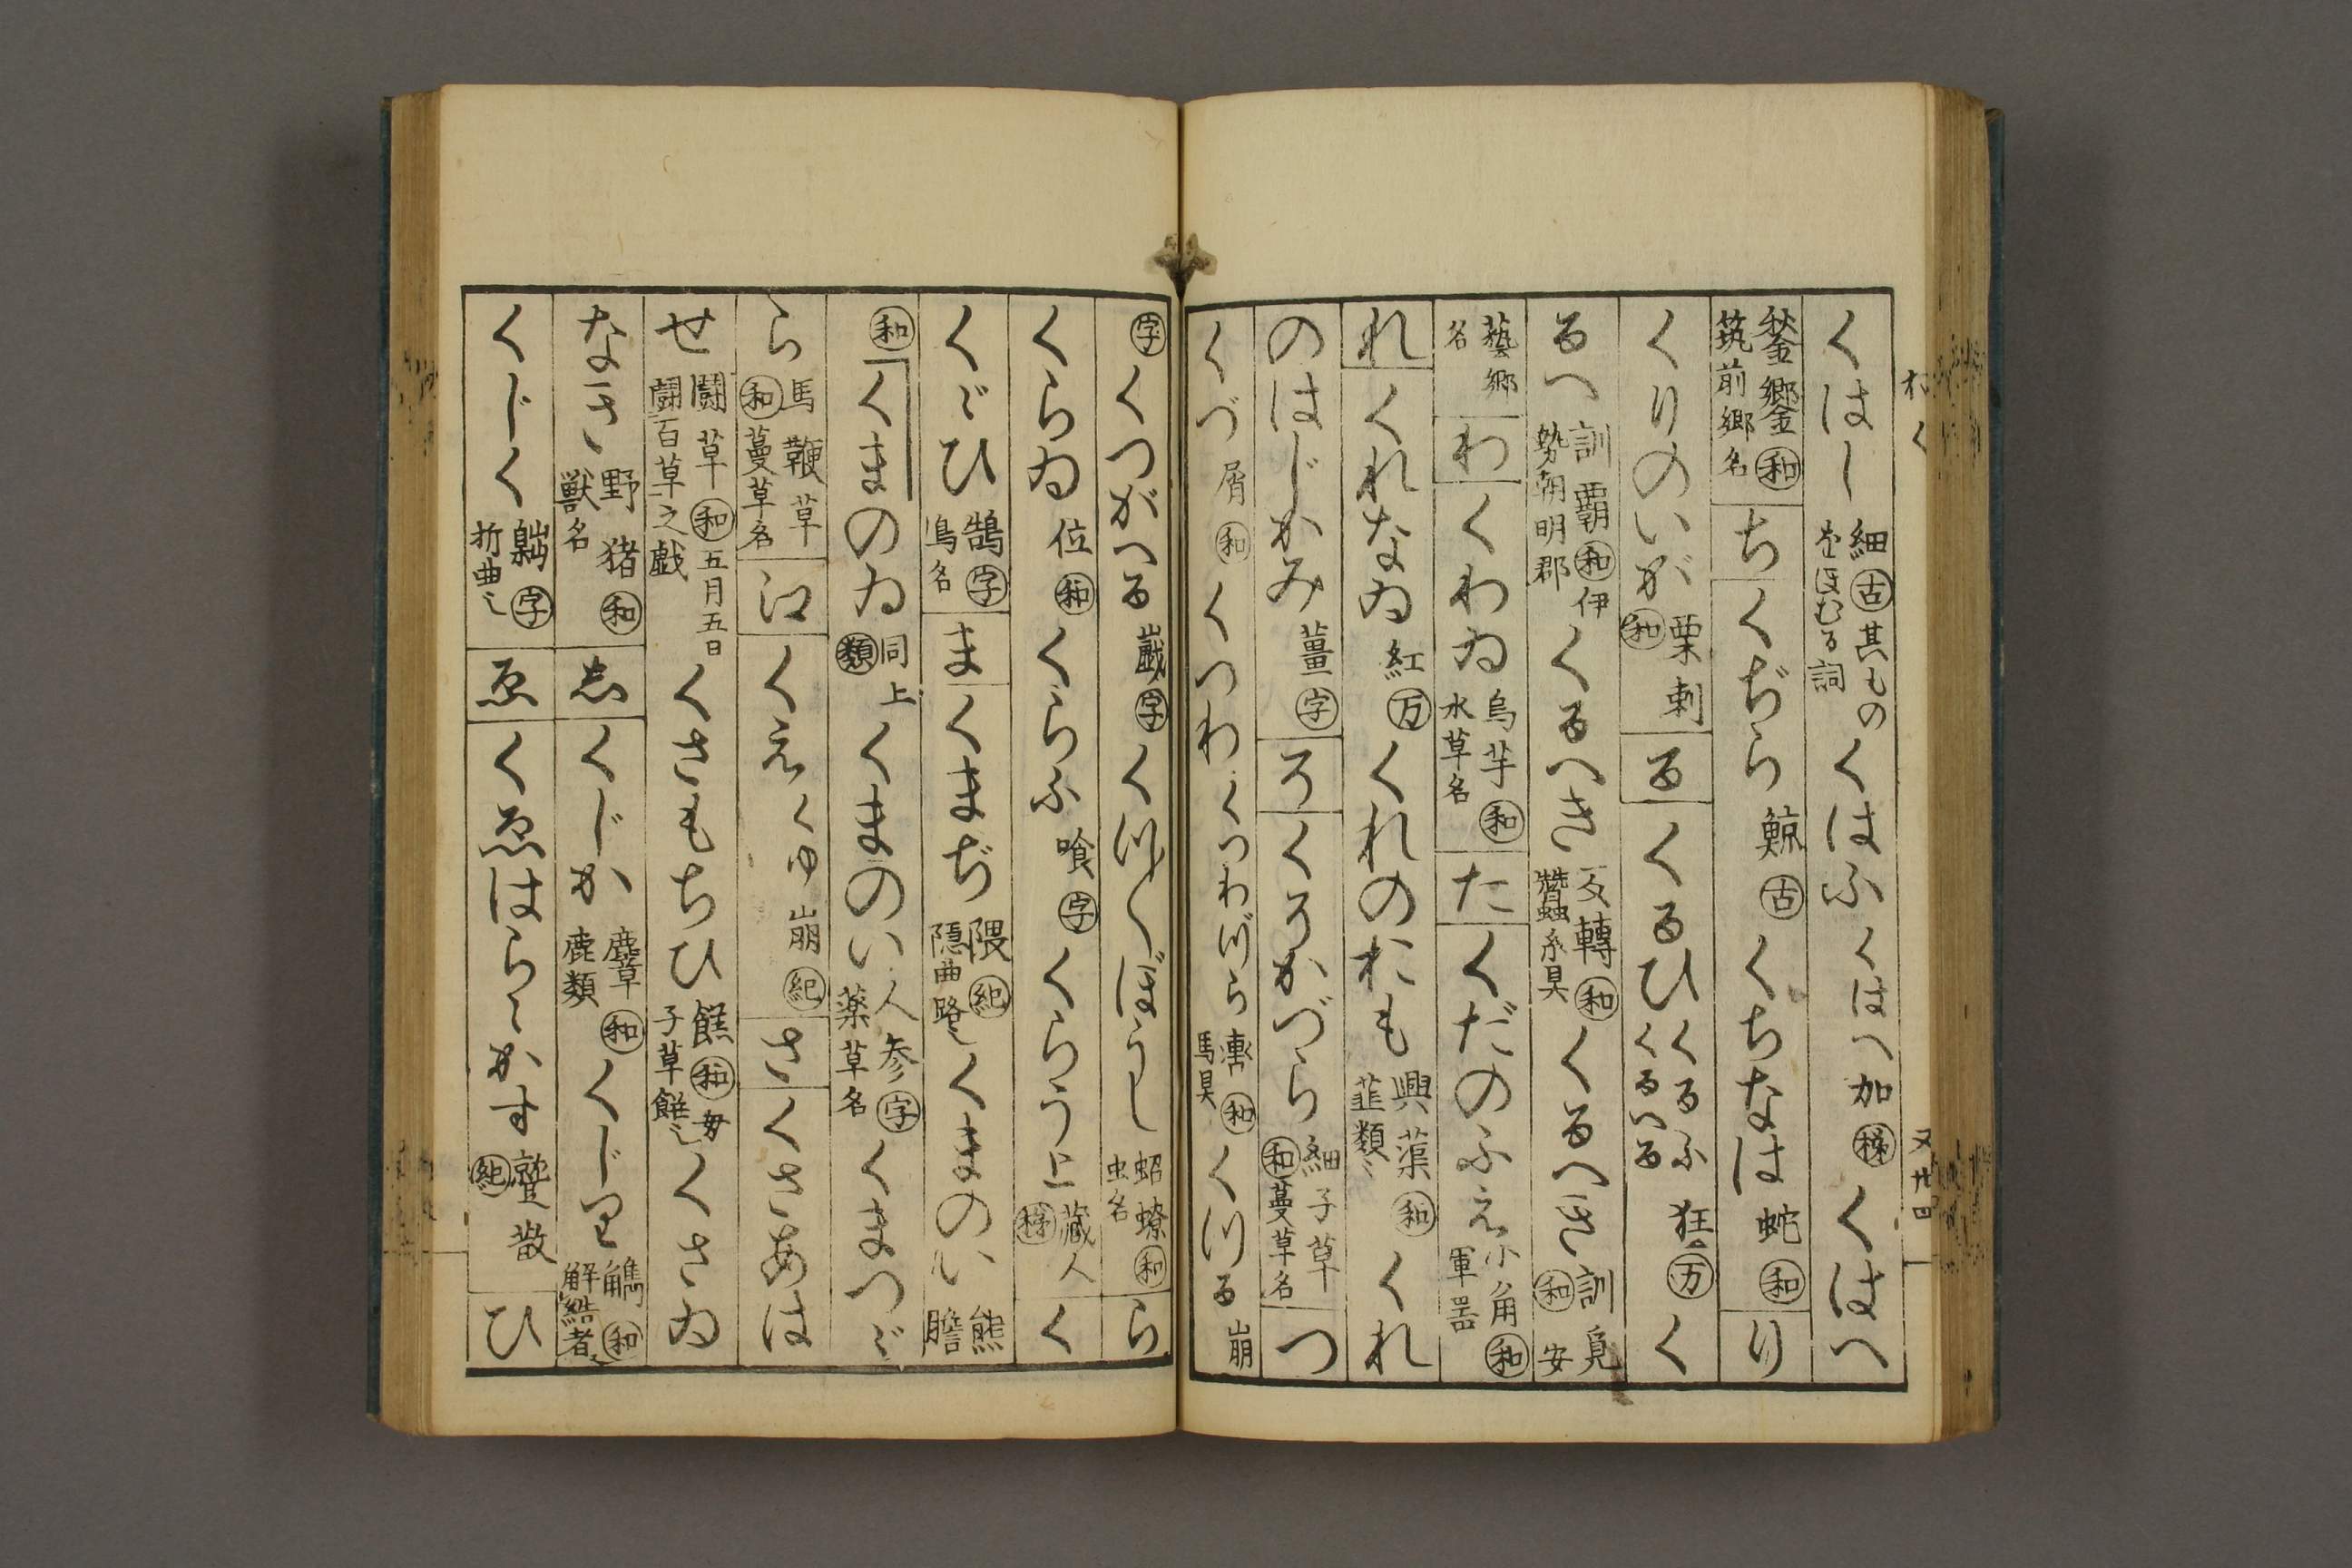 くはし 細 古 其ものをほむる詞 くはふ くはへ 加 くはへ
鍫 郷 和 筑前郷名 ち くぢら 鯨 古 くちなは 蛇 和 り
くりのいが 栗刺 和 る くるひ くるふ くるへる 狂 万 く
るへ 訓覇 和 伊勢朝明郡 くるへき 反轉 和 蠶糸具 くるへき 訓覓 和 安
藝郷名 わ くわゐ 烏芋 和 水草名 た くだのふえ 小角 和 軍器
れ くれなゐ 紅 万 くれのおも 興蕖 和 韮類 くれ
のはじかみ 薑 字 ろ くろかづら 細子草 和 蔓草名 つ
くづ 屑 和 くつわ くつわづら 和 馬具 くづる 崩
字 くつがへる 字 くつくつぼうし 蛁蟟 和 虫名 ら
くらゐ 位 和 くらふ 喰 字 くらうど 蔵人 く
くゞひ 鵠 字 鳥名 ま くまぢ 隈 紀 隠曲路 くまのい 熊膽
和 くまのゐ 同上 類 くまのい 人参 字 薬草名 くまつゞ
ら 馬鞭草 和 蔓草名 江 くえ くゆ 崩 紀 さ くさあは
せ 闘草 和 五月五日闘百草之戯 くさもちひ 和 母子草餅 くさゐ
なき 野猪 和 獣名 志 くじか 麞 和 鹿類 くじり 觿 和 解結者
くじく 字 折曲 ゑ くゑはらゝかす 蹵散 紀 ひ
おく
又廿四